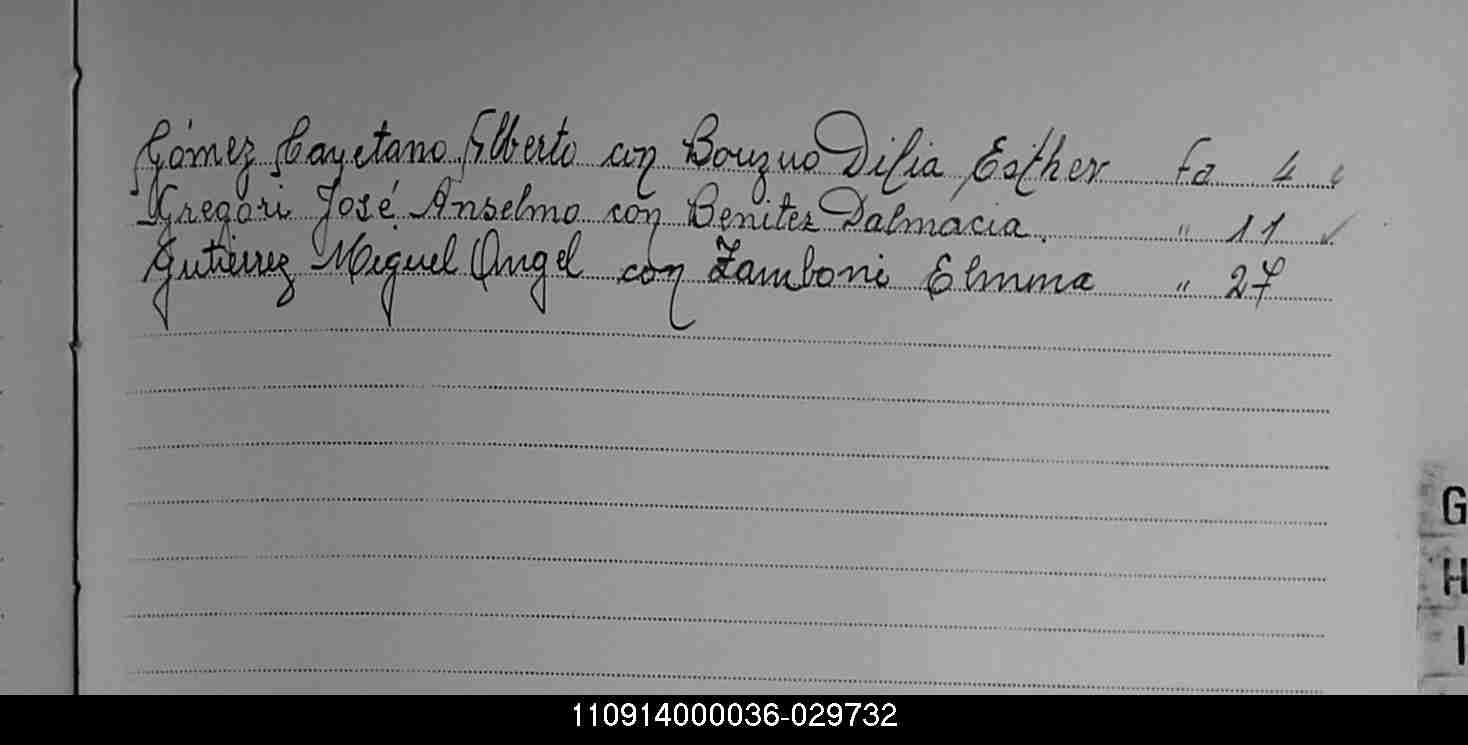 Gómez Cayetano Alberto con Bouzuo Dilia Esther Fo 4
Gregori José Anselmo con Benitez Dalmacia. " 11
Gutiérrez Miguel Angel con Zamboni Elmma " 27
G
H
I
110914000036-029732